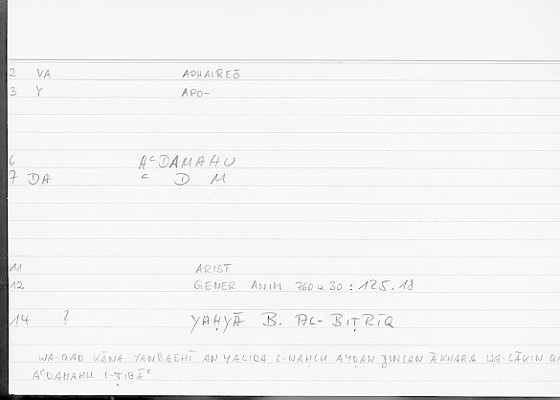 2 VA APHAIREŌ
3 Y APO-
6 AʿDAMAHU
7 DA ʿ D M
11 ARIST
12 GENER ANIM 760 a 30 : 125.18
14 ? YAḤYĀ B. AL-BIṬRĪQ
WA-QAD KĀNA YANBAGHĪ AN YALIDA L-NAḤLU AYḌAN ǦINSAN ĀKHARA WA-LĀKIN QA
AʿDAMAHU L-ṬIBĀʿ